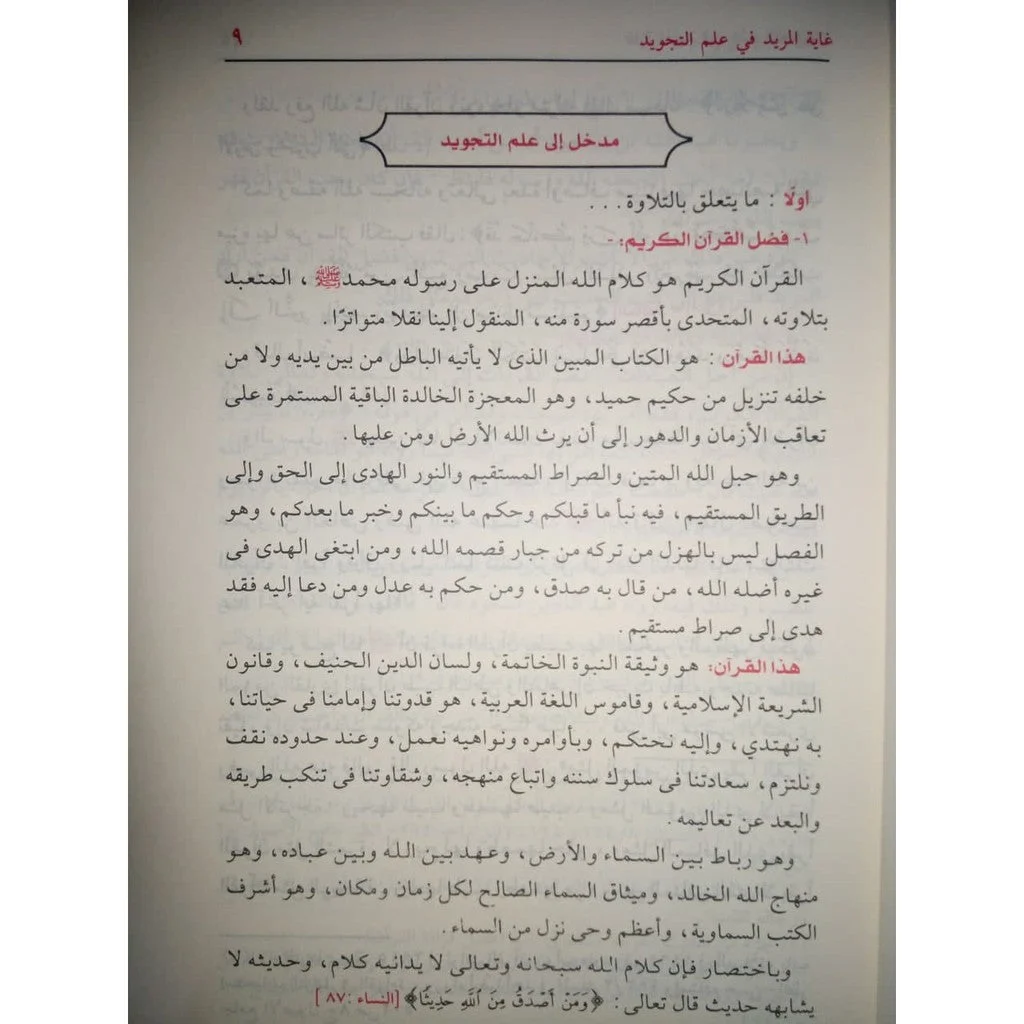 غاية المريد في علم التجويد ٩
مدخل إلى علم التجويد
أولًا : ما يتعلق بالتلاوة . . .
١- فضل القرآن الكريم: -
القرآن الكريم هو كلام الله المنزل على رسوله محمد ﷺ ، المتعبد
بتلاوته، المتحدى بأقصر سورة منه، المنقول إلينا نقلا متواترًا.
هذا القرآن : هو الكتاب المبين الذى لا يأتيه الباطل من بين يديه ولا من
خلفه تنزيل من حكيم حميد، وهو المعجزة الخالدة الباقية المستمرة على
تعاقب الأزمان والدهور إلى أن يرث الله الأرض ومن عليها.
وهو حبل الله المتين والصراط المستقيم والنور الهادى إلى الحق وإلى
الطريق المستقيم، فيه نبأ ما قبلكم وحكم ما بينكم وخبر ما بعدكم، وهو
الفصل ليس بالهزل من تركه من جبار قصمه الله، ومن ابتغى الهدى فى
غيره أضله الله، من قال به صدق، ومن حكم به عدل ومن دعا إليه فقد
هدى إلى صراط مستقيم.
هذا القرآن: هو وثيقة النبوة الخاتمة، ولسان الدين الحنيف، وقانون
الشريعة الإسلامية، وقاموس اللغة العربية، هو قدوتنا وإمامنا فى حياتنا،
به نهتدي، وإليه نحتكم، وبأوامره ونواهيه نعمل، وعند حدوده نقف
ونلتزم، سعادتنا فى سلوك سننه واتباع منهجه، وشقاوتنا فى تنكب طريقه
والبعد عن تعاليمه.
وهو رباط بين السماء والأرض، وعهد بين الله وبين عباده، وهو
منهاج الله الخالد، وميثاق السماء الصالح لكل زمان ومكان، وهو أشرف
الكتب السماوية، وأعظم وحى نزل من السماء.
وباختصار فإن كلام الله سبحانه وتعالى لا يدانيه كلام، وحديثه لا
يشابهه حديث قال تعالى: ﴿وَمَنْ أَصْدَقُ مِنَ ٱللَّهِ حَدِيثًا﴾ [النساء : ٨٧]